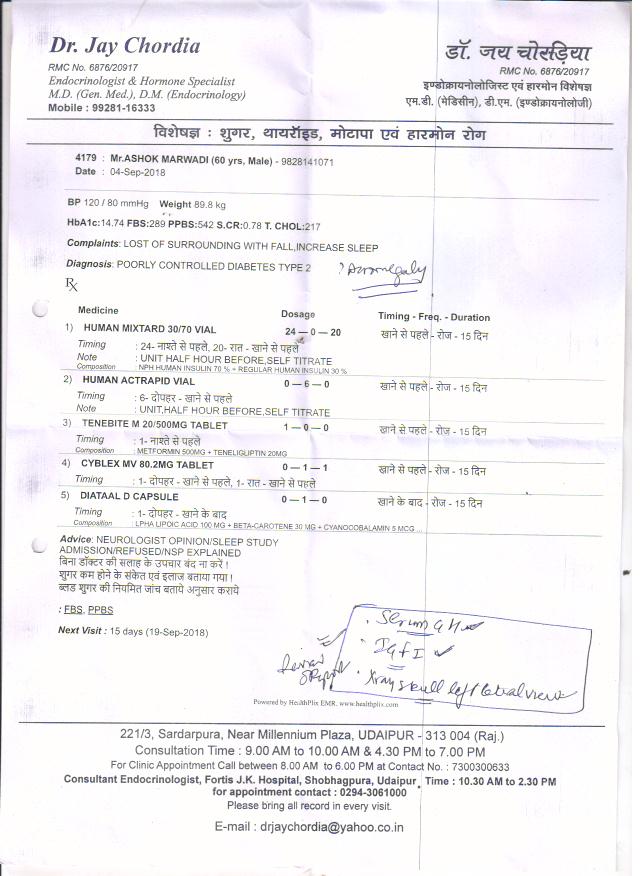 Dr. Jay Chordia
RMC No. 6876/20917
Endocrinologist & Hormone Specialist
M.D. (Gen. Med.), D.M. (Endocrinology)
Mobile : 99281-16333
डॉ. जय चोरड़िया
RMC No. 6876/20917
इण्डोक्रायनोलोजिस्ट एवं हारमोन विशेषज्ञ
एम.डी. (मेडिसीन), डी.एम. (इण्डोक्रायनोलोजी)
विशेषज्ञ : शुगर, थायरॉइड, मोटापा एवं हारमोन रोग
4179 : Mr.ASHOK MARWADI (60 yrs, Male) - 9828141071
Date : 04-Sep-2018
BP 120 / 80 mmHg Weight 89.8 kg
HbA1c:14.74 FBS:289 PPBS:542 S.CR:0.78 T. CHOL:217
Complaints: LOST OF SURROUNDING WITH FALL,INCREASE SLEEP
Diagnosis: POORLY CONTROLLED DIABETES TYPE 2 ? Acromegaly
Rx
Medicine Dosage Timing - Freq. - Duration
1) HUMAN MIXTARD 30/70 VIAL 24 — 0 — 20 खाने से पहले - रोज - 15 दिन
Timing : 24- नाश्ते से पहले, 20- रात - खाने से पहले
Note : UNIT HALF HOUR BEFORE,SELF TITRATE
Composition : NPH HUMAN INSULIN 70 % + REGULAR HUMAN INSULIN 30 %
2) HUMAN ACTRAPID VIAL 0 — 6 — 0 खाने से पहले - रोज - 15 दिन
Timing : 6- दोपहर - खाने से पहले
Note : UNIT,HALF HOUR BEFORE,SELF TITRATE
3) TENEBITE M 20/500MG TABLET 1 — 0 — 0 खाने से पहले - रोज - 15 दिन
Timing : 1- नाश्ते से पहले
Composition : METFORMIN 500MG + TENELIGLIPTIN 20MG
4) CYBLEX MV 80.2MG TABLET 0 — 1 — 1 खाने से पहले - रोज - 15 दिन
Timing : 1- दोपहर - खाने से पहले, 1- रात - खाने से पहले
5) DIATAAL D CAPSULE 0 — 1 — 0 खाने के बाद - रोज - 15 दिन
Timing : 1- दोपहर - खाने के बाद
Composition : LPHA LIPOIC ACID 100 MG + BETA-CAROTENE 30 MG + CYANOCOBALAMIN 5 MCG ...
Advice: NEUROLOGIST OPINION/SLEEP STUDY
ADMISSION/REFUSED/NSP EXPLAINED
बिना डॉक्टर की सलाह के उपचार बंद ना करें !
शुगर कम होने के संकेत एवं इलाज बताया गया !
ब्लड शुगर की नियमित जांच बताये अनुसार कराये
: FBS, PPBS
Next Visit : 15 days (19-Sep-2018)
Serum GH
IGF I
Xray skull left lateral view
Powered by HealthPlix EMR, www.healthplix.com
221/3, Sardarpura, Near Millennium Plaza, UDAIPUR - 313 004 (Raj.)
Consultation Time : 9.00 AM to 10.00 AM & 4.30 PM to 7.00 PM
For Clinic Appointment Call between 8.00 AM to 6.00 PM at Contact No. : 7300300633
Consultant Endocrinologist, Fortis J.K. Hospital, Shobhagpura, Udaipur Time : 10.30 AM to 2.30 PM
for appointment contact : 0294-3061000
Please bring all record in every visit.
E-mail : drjaychordia@yahoo.co.in